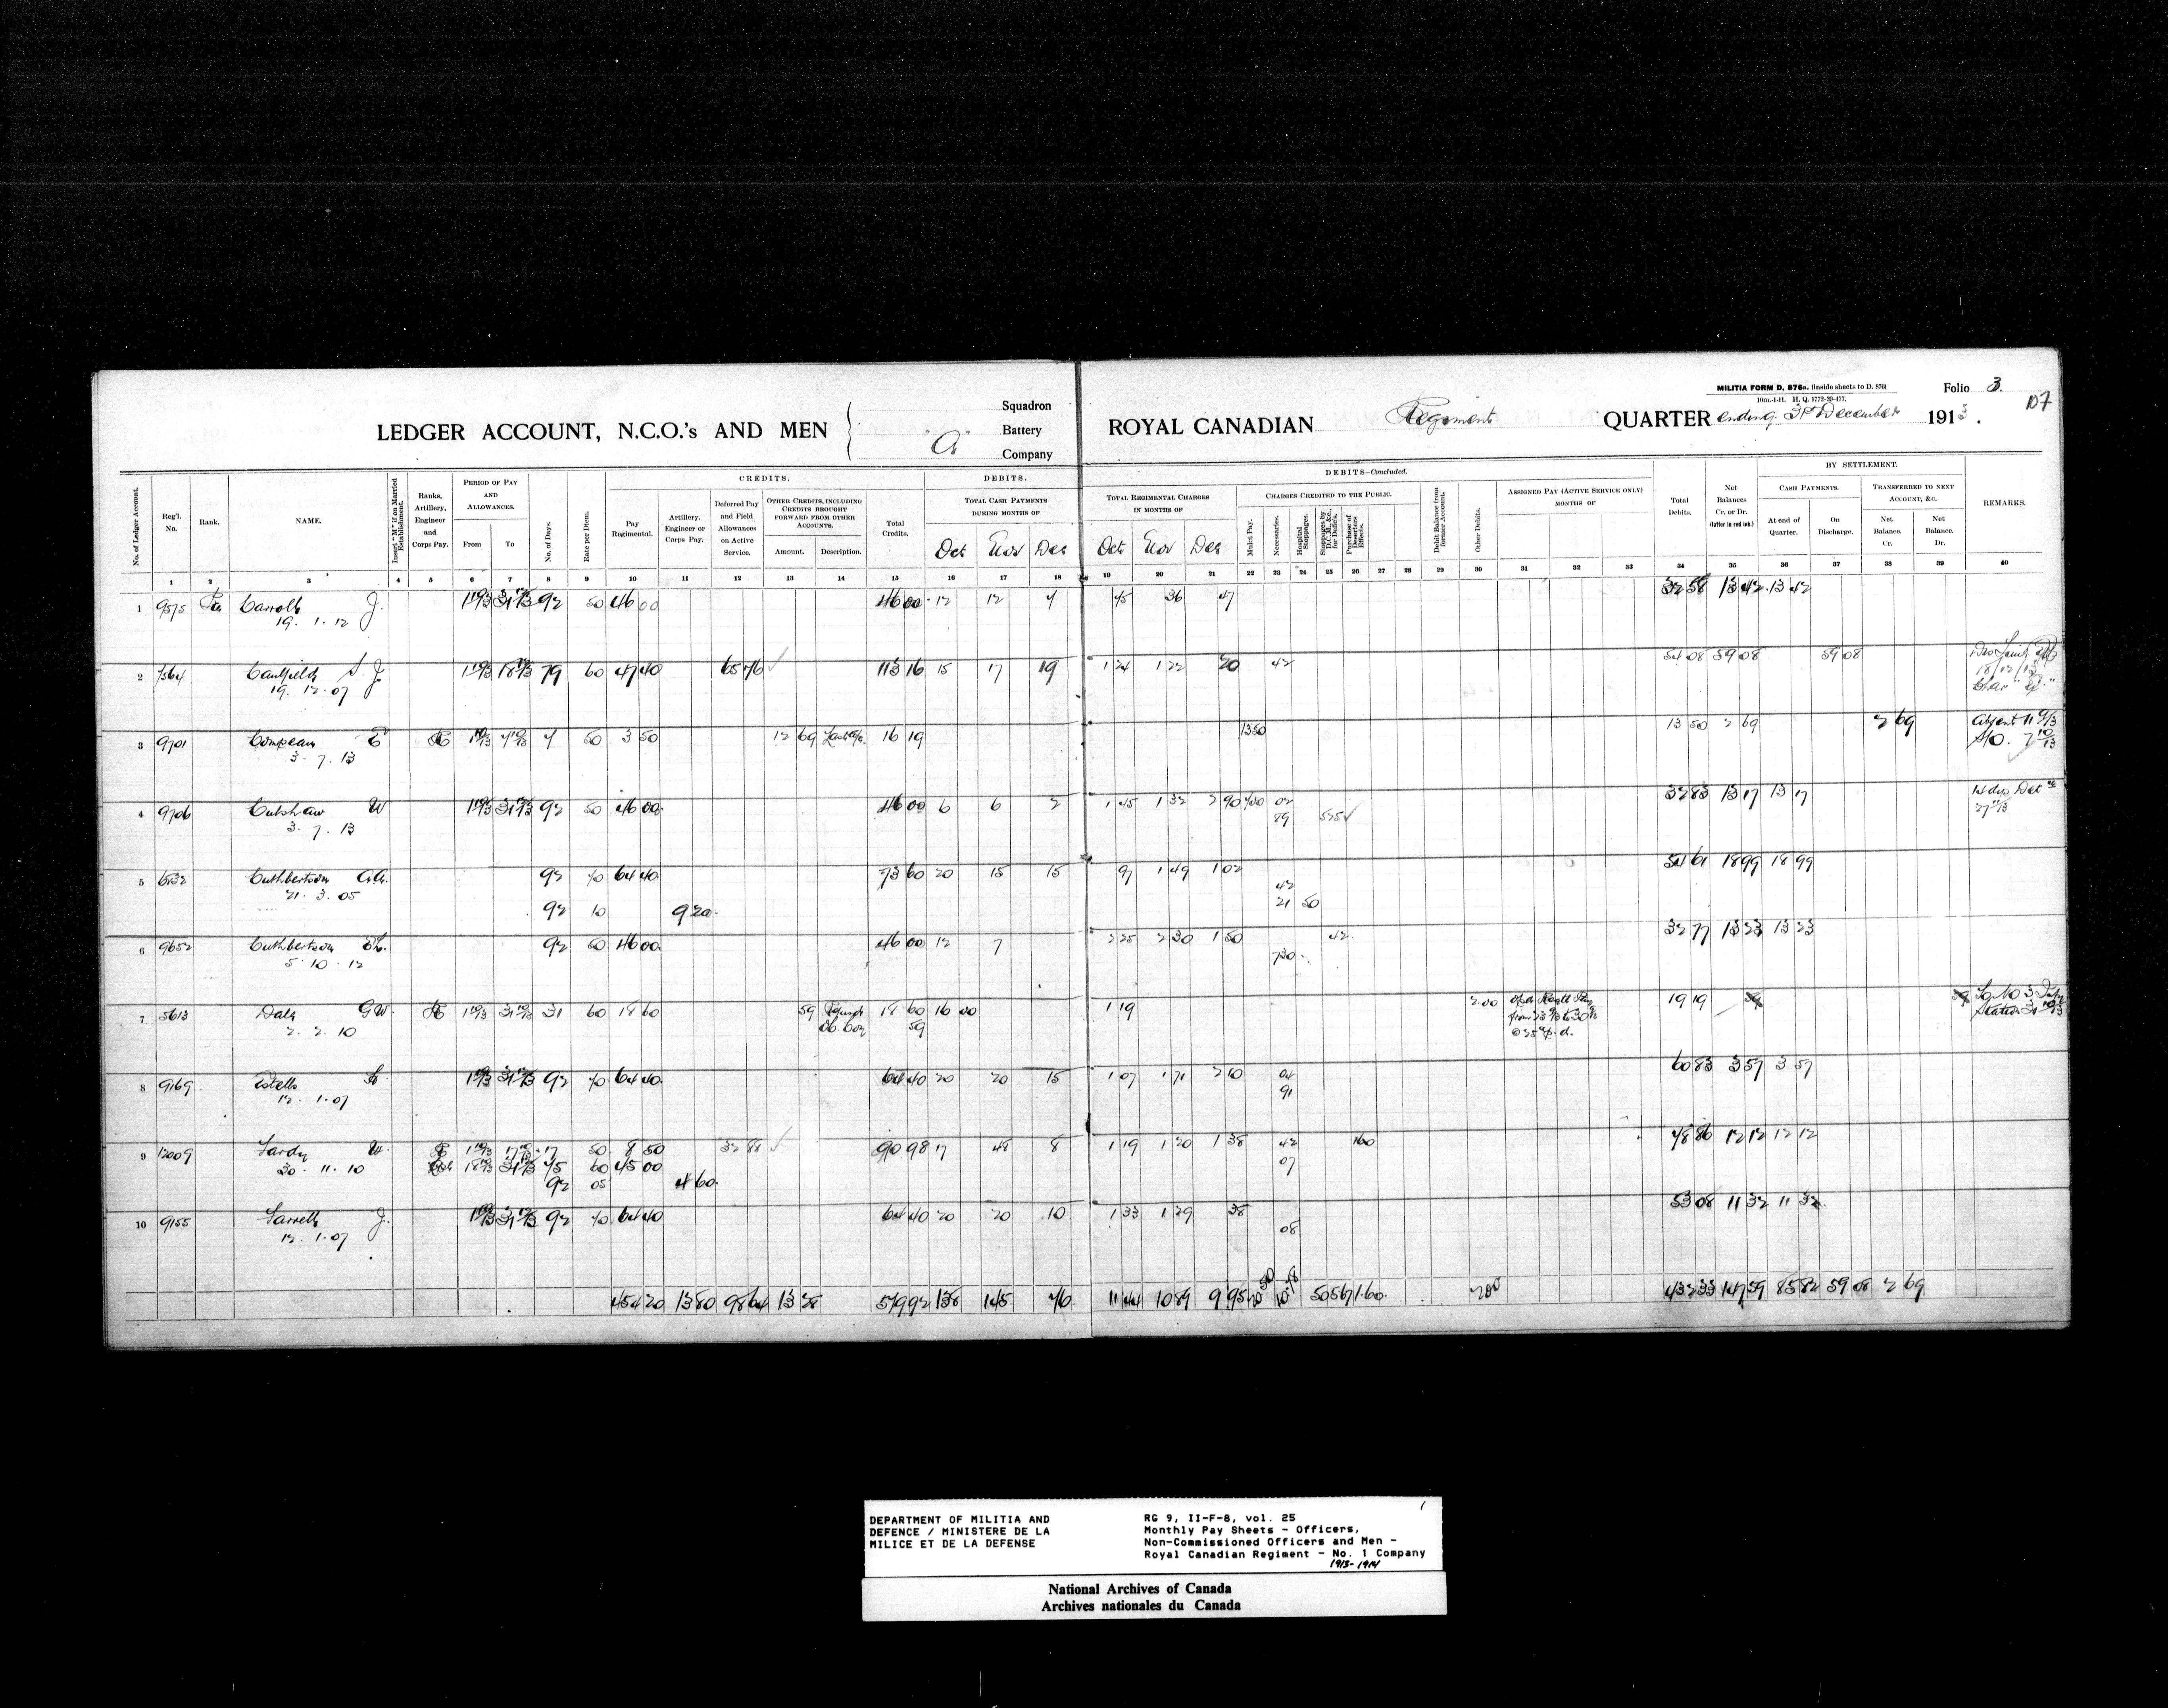 MILITIA FORM D. 876a. (Inside sheets to D. 876)
10m.-1-11. H. Q. 1772-39-477.
Folio 3.
107
LEDGER ACCOUNT, N.C.O.'s AND MEN
Squadron
Battery
Company
ROYAL CANADIAN Regiment QUARTER ending 31st December 1913.
CREDITS. DEBITS. DEBITS—Concluded. BY SETTLEMENT.
No. of Ledger Account. Reg'l. No. Rank. NAME. Insert "M" if on Married Establishment. Ranks, Artillery, Engineer and Corps Pay. PERIOD OF PAY AND ALLOWANCES. From To No. of Days. Rate per Diem. Pay Regimental. Artillery, Engineer or Corps Pay. Deferred Pay and Field Allowances on Active Service. OTHER CREDITS, INCLUDING CREDITS BROUGHT FORWARD FROM OTHER ACCOUNTS. Amount. Description. Total Credits. TOTAL CASH PAYMENTS DURING MONTHS OF Oct Nov Dec
TOTAL REGIMENTAL CHARGES IN MONTHS OF Oct Nov Dec CHARGES CREDITED TO THE PUBLIC. Mulct Pay. Necessaries. Hospital Stoppages. Stoppages by D.C.M., &c., for Deficies. Purchase of Deserters' Effects. Debit Balance from former Account. Other Debits. ASSIGNED PAY (ACTIVE SERVICE ONLY) MONTHS OF Total Debits. Net Balances Cr. or Dr. (latter in red ink.) CASH PAYMENTS. At end of Quarter. On Discharge. TRANSFERRED TO NEXT ACCOUNT, &C. Net Balance. Cr. Net Balance. Dr. REMARKS.
1 2 3 4 5 6 7 8 9 10 11 12 13 14 15 16 17 18 19 20 21 22 23 24 25 26 27 28 29 30 31 32 33 34 35 36 37 38 39 40
1 9575 Carroll J. 92 50 46 00 46 00 12 12 7 45 36 47 32 58 13 42 13 42
19. 1. 12
2 7364 Caulfield S. J. 79 60 47 40 65 76 113 16 15 17 19 1 24 1 22 20 42 54 08 59 08 59 08
19. 12. 07
18/12/13
3 9701 Compeau E 7 50 3 50 12 69 16 19 13 50 13 50 2 69 2 69 Absent
3. 7. 13
S/O.
4 9706 Cutshaw W 92 50 46 00 46 00 6 6 2 1 45 1 32 2 90 02 32 83 13 17 13 17
3. 7. 13 89 525
5 6832 Cuthbertson 92 70 64 40 73 60 20 15 15 97 1 49 1 02 54 61 18 99 18 99
21. 3. 05 42
92 10 9 20 21 50
6 9652 Cuthbertson 92 50 46 00 46 00 12 7 2 25 2 30 1 50 42 32 77 13 23 13 23
5. 10. 12 7 30
7 5613 Dale G.W. 31 60 18 60 59 18 60 16 00 1 19 2.00 19 19
2. 2. 10 59
8 9169 Estelle 92 70 64 40 64 40 20 20 15 1 07 1 71 2 10 04 60 83 3 57 3 57
12. 1. 07 91
9 12009 Fardy W. 17 50 8 50 32 88 90 98 17 48 8 1 19 1 20 1 38 42 160 78 86 12 12 12 12
30. 11. 10 75 60 45 00 07
92 05 4 60
10 9155 Farrell J. 92 70 64 40 64 40 20 20 10 1 33 1 29 38 53 08 11 32 11 32
12. 1. 07 08
454 20 13 80 98 64 13 28 579 92 138 145 76 11 44 10 89 9 95 1.60 200 432 33 147 59 85 82 59 08 2 69
DEPARTMENT OF MILITIA AND
DEFENCE / MINISTERE DE LA
MILICE ET DE LA DEFENSE
RG 9, II-F-8, vol. 25
Monthly Pay Sheets - Officers,
Non-Commissioned Officers and Men -
Royal Canadian Regiment - No. 1 Company
1913-1914
1
National Archives of Canada
Archives nationales du Canada